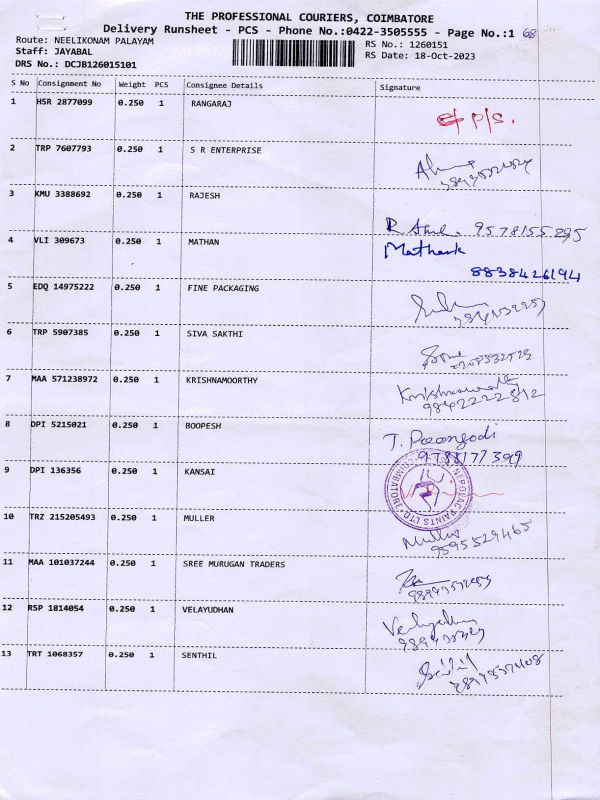 THE PROFESSIONAL COURIERS, COIMBATORE
Delivery Runsheet - PCS - Phone No.:0422-3505555 - Page No.:1 68
Route: NEELIKONAM PALAYAM RS No.: 1260151
Staff: JAYABAL RS Date: 18-Oct-2023
DRS No.: DCJB126015101
S No Consignment No Weight PCS Consignee Details Signature
1 HSR 2877099 0.250 1 RANGARAJ P/S.
2 TRP 7607793 0.250 1 S R ENTERPRISE
3 KMU 3388692 0.250 1 RAJESH R 9578155295
4 VLI 309673 0.250 1 MATHAN Mathank
8838426194
5 EDQ 14975222 0.250 1 FINE PACKAGING
6 TRP 5907385 0.250 1 SIVA SAKTHI
7 MAA 571238972 0.250 1 KRISHNAMOORTHY Krishnamoorthy
8 DPI 5215021 0.250 1 BOOPESH T. Poongodi
9 DPI 136356 0.250 1 KANSAI NEROLAC PAINTS LTD COIMBATORE
10 TRZ 215205493 0.250 1 MULLER Muller
9595529465
11 MAA 101037244 0.250 1 SREE MURUGAN TRADERS
12 RSP 1814054 0.250 1 VELAYUDHAN Velayudhan
13 TRT 1068357 0.250 1 SENTHIL